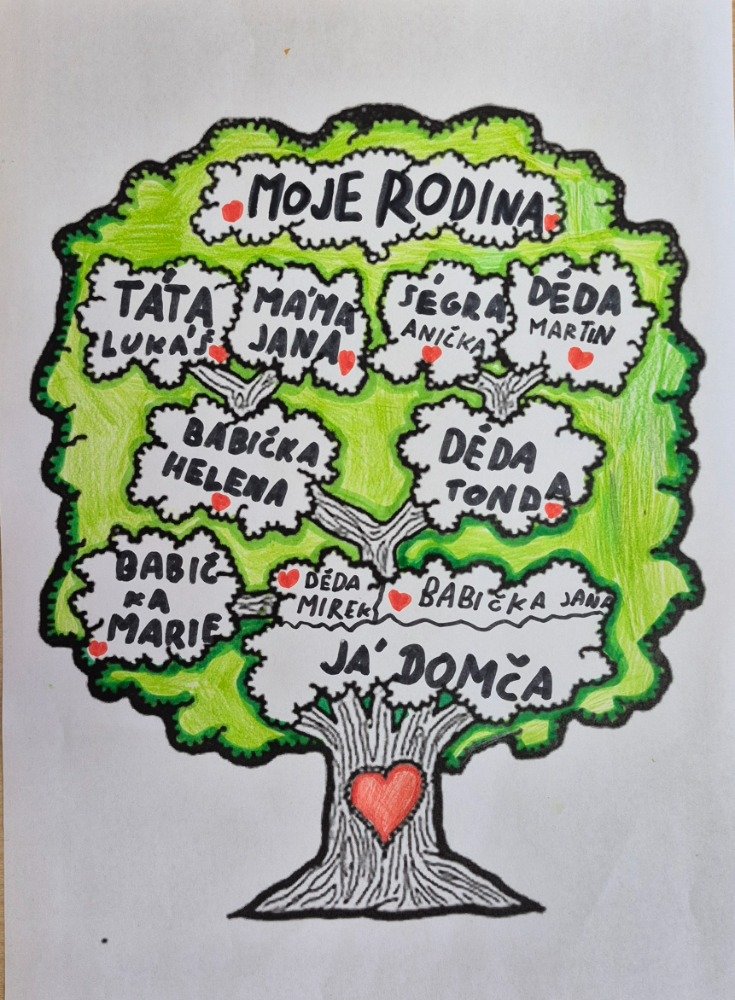 MOJE RODINA
TÁTA
LUKÁŠ
MÁMA
JANA
SÉGRA
ANIČKA
DÉDA
MARTIN
BABIČKA
HELENA
DÉDA
TONDA
BABIČ
KA
MARIE
DÉDA
MIREK
BABIČKA JANA
JÁ DOMČA